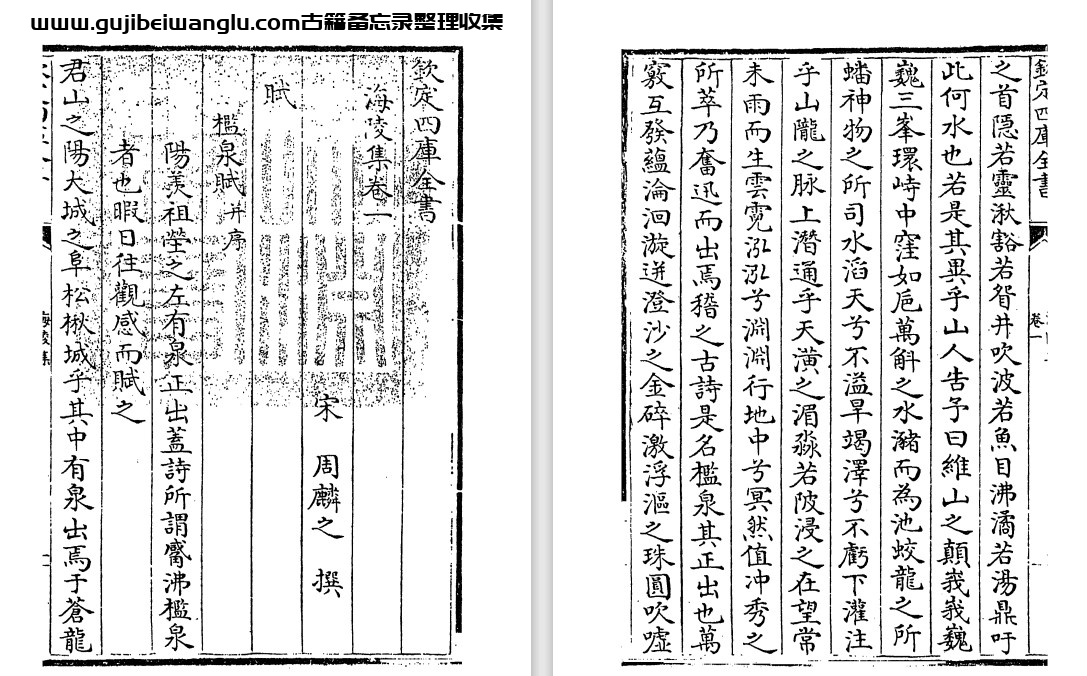 www.gujibeiwanglu.com古籍备忘录整理收集
欽定四庫全書
海陵集卷一
宋 周麟之 撰
賦
檻泉賦并序
陽羨祖塋之左有泉正出蓋詩所謂觱沸檻泉
者也暇日往觀感而賦之
君山之陽大城之阜松楸城乎其中有泉出焉于蒼龍
海陵集
欽定四庫全書
卷一
之首隠若靈湫豁若眢井吹波若魚目沸潏若湯鼎吁
此何水也若是其異乎山人告予曰維山之顛峩峩巍
巍三峯環峙中窪如巵萬斛之水瀦而為池蛟龍之所
蟠神物之所司水滔天兮不溢旱竭澤兮不虧下灌注
乎山隴之脉上潛通乎天潢之湄淼若陂浸之在望常
未雨而生雲霓泓泓兮淵淵行地中兮冥然值冲秀之
所萃乃奮迅而出焉稽之古詩是名檻泉其正出也萬
竅互發蘊淪洄漩迸澄沙之金碎激浮漚之珠圓吹嘘